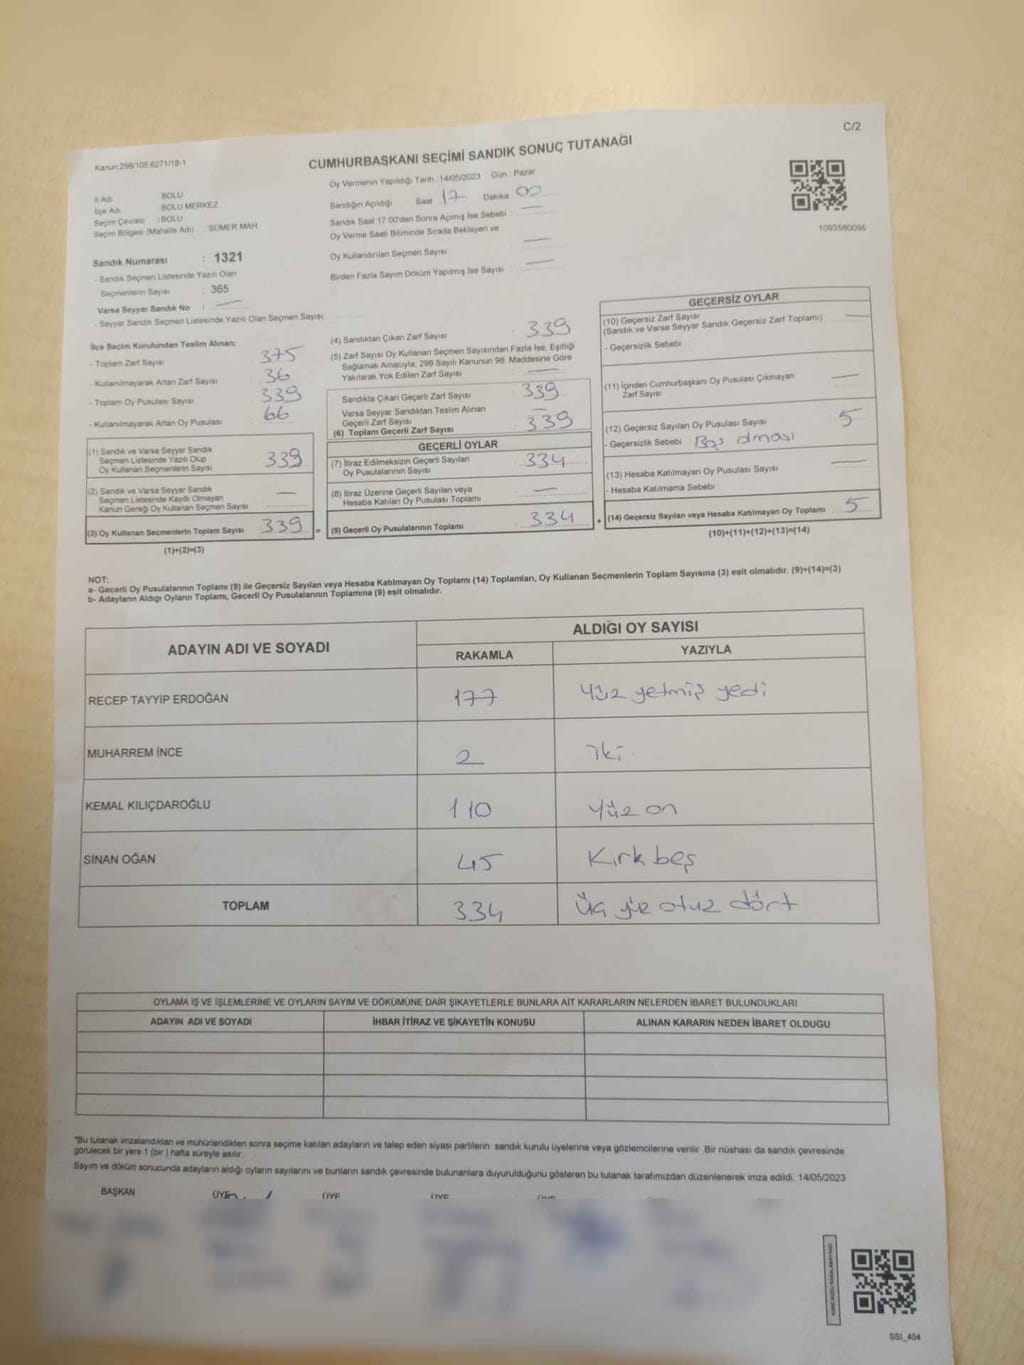 C/2
Kanun:298/105;6271/18-1
CUMHURBAŞKANI SEÇİMİ SANDIK SONUÇ TUTANAĞI
İl Adı BOLU
İlçe Adı BOLU MERKEZ
Seçim Çevresi : BOLU
Seçim Bölgesi (Mahalle Adı) SÜMER MAH.
Sandık Numarası : 1321
- Sandık Seçmen Listesinde Yazılı Olan
Seçmenlerin Sayısı : 365
Varsa Seyyar Sandık No : —
- Seyyar Sandık Seçmen Listesinde Yazılı Olan Seçmen Sayısı
Oy Vermenin Yapıldığı Tarih : 14/05/2023 Gün : Pazar
Sandığın Açıldığı Saat 17 Dakika : 00
Sandık Saat 17.00'den Sonra Açımış İse Sebebi —
Oy Verme Saati Bitiminde Sırada Bekleyen ve
Oy Kullandırılan Seçmen Sayısı —
Birden Fazla Sayım Döküm Yapılmış İse Sayısı : —
1093560095
İlçe Seçim Kurulundan Teslim Alınan;
- Toplam Zarf Sayısı 375
- Kullanılmayarak Artan Zarf Sayısı 36
- Toplam Oy Pusulası Sayısı 339
- Kullanılmayarak Artan Oy Pusulası 66
(1) Sandık ve Varsa Seyyar Sandık
Seçmen Listesinde Yazılı Olup
Oy Kullanan Seçmenlerin Sayısı 339
(2) Sandık ve Varsa Seyyar Sandık
Seçmen Listesinde Kayıtlı Olmayan
Kanun Gereği Oy Kullanan Seçmen Sayısı —
(3) Oy Kullanan Seçmenlerin Toplam Sayısı 339 =
(1)+(2)=(3)
(4) Sandıktan Çıkan Zarf Sayısı : 339
(5) Zarf Sayısı Oy Kullanan Seçmen Sayısından Fazla İse, Eşitliği
Sağlamak Amacıyla; 298 Sayılı Kanunun 98. Maddesine Göre
Yakılarak Yok Edilen Zarf Sayısı —
Sandıkta Çıkan Geçerli Zarf Sayısı 339
Varsa Seyyar Sandıktan Teslim Alınan
Geçerli Zarf Sayısı —
(6) Toplam Geçerli Zarf Sayısı 339
GEÇERLİ OYLAR
(7) İtiraz Edilmeksizin Geçerli Sayılan
Oy Pusulalarının Sayısı 334
(8) İtiraz Üzerine Geçerli Sayılan veya
Hesaba Katılan Oy Pusulası Toplamı —
(9) Geçerli Oy Pusulalarının Toplamı 334 +
GEÇERSİZ OYLAR
(10) Geçersiz Zarf Sayısı —
(Sandık ve Varsa Seyyar Sandık Geçersiz Zarf Toplamı)
- Geçersizlik Sebebi
(11) İçinden Cumhurbaşkanı Oy Pusulası Çıkmayan
Zarf Sayısı —
(12) Geçersiz Sayılan Oy Pusulası Sayısı 5
- Geçersizlik Sebebi Boş olması
(13) Hesaba Katılmayan Oy Pusulası Sayısı —
- Hesaba Katılmama Sebebi
(14) Geçersiz Sayılan veya Hesaba Katılmayan Oy Toplamı 5
(10)+(11)+(12)+(13)=(14)
NOT:
a- Geçerli Oy Pusulalarının Toplamı (9) ile Geçersiz Sayılan veya Hesaba Katılmayan Oy Toplamı (14) Toplamları, Oy Kullanan Seçmenlerin Toplam Sayısına (3) eşit olmalıdır. (9)+(14)=(3)
b- Adayların Aldığı Oyların Toplamı, Geçerli Oy Pusulalarının Toplamına (9) eşit olmalıdır.
ADAYIN ADI VE SOYADI ALDIĞI OY SAYISI
RAKAMLA YAZIYLA
RECEP TAYYİP ERDOĞAN 177 yüz yetmiş yedi
MUHARREM İNCE 2 iki
KEMAL KILIÇDAROĞLU 110 yüz on
SİNAN OĞAN 45 Kırk beş
TOPLAM 334 Üç yüz otuz dört
OYLAMA İŞ VE İŞLEMLERİNE VE OYLARIN SAYIM VE DÖKÜMÜNE DAİR ŞİKAYETLERLE BUNLARA AİT KARARLARIN NELERDEN İBARET BULUNDUKLARI
ADAYIN ADI VE SOYADI İHBAR İTİRAZ VE ŞİKAYETİN KONUSU ALINAN KARARIN NEDEN İBARET OLDUĞU
*Bu tutanak imzalandıktan ve mühürlendikten sonra seçime katılan adayların ve talep eden siyasi partilerin sandık kurulu üyelerine veya gözlemcilerine verilir. Bir nüshası da sandık çevresinde
görülecek bir yere 1 (bir ) hafta süreyle asılır.
Sayım ve döküm sonucunda adayların aldığı oyların sayılarını ve bunların sandık çevresinde bulunanlara duyurulduğunu gösteren bu tutanak tarafımızdan düzenlenerek imza edildi. 14/05/2023
BAŞKAN ÜYE ÜYE ÜYE
SSI_404